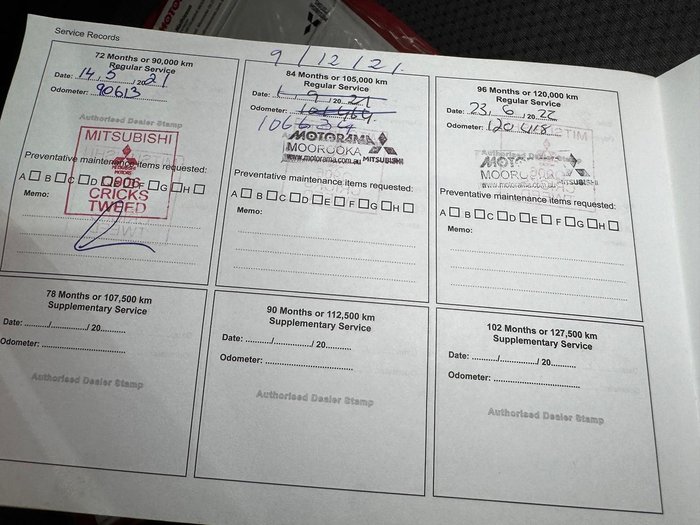 Service Records
72 Months or 90,000 km
Regular Service
Date: 14, 5 / 2021
Odometer: 90613
Authorised Dealer Stamp
MITSUBISHI
MITSUBISHI
MOTORS
0906
CRICKS
TWEED
Preventative maintenance items requested:
A B C D E F G H
Memo:
9/12/21.
84 Months or 105,000 km
Regular Service
Date: 1, 9 / 20 21
Odometer: 101464
106634
MOTORAMA
MOOROOKA
www.motorama.com.au MITSUBISHI
Preventative maintenance items requested:
A B C D E F G H
Memo:
96 Months or 120,000 km
Regular Service
Date: 23, 6 / 20 22
Odometer: 120418
Authorised Dealer Stamp
MITSUBISHI
Preventative maintenance items requested:
A B C D E F G H
Memo:
78 Months or 107,500 km
Supplementary Service
Date: ........../........../ 20..........
Odometer: ..............................
Authorised Dealer Stamp
90 Months or 112,500 km
Supplementary Service
Date: ........../........../ 20..........
Odometer: ..............................
Authorised Dealer Stamp
102 Months or 127,500 km
Supplementary Service
Date: ........../........../ 20..........
Odometer: ..............................
Authorised Dealer Stamp